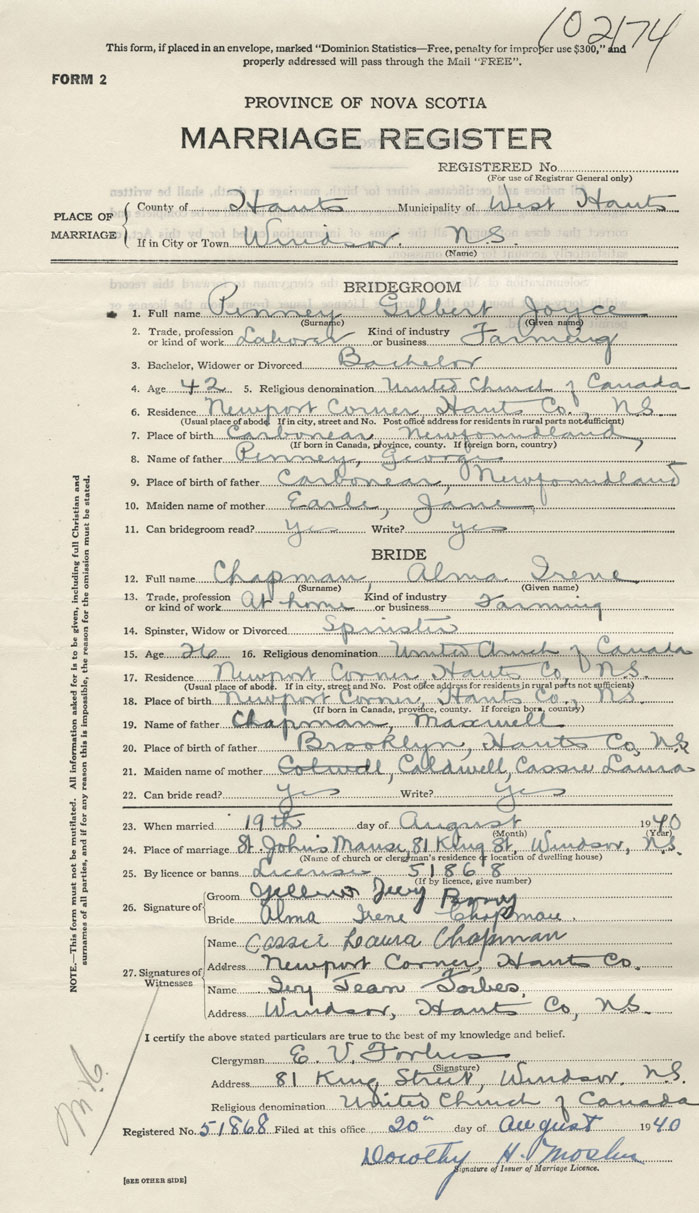 102174
This form, if placed in an envelope, marked "Dominion Statistics—Free, penalty for improper use $300," and
properly addressed will pass through the Mail "FREE".
FORM 2
PROVINCE OF NOVA SCOTIA
MARRIAGE REGISTER
REGISTERED No.
(For use of Registrar General only)
PLACE OF MARRIAGE
County of Hants Municipality of West Hants
If in City or Town Windsor. N.S.
(Name)
BRIDEGROOM
1. Full name Penney Gilbert Joyce
(Surname) (Given name)
2. Trade, profession or kind of work Laborer Kind of industry or business Farming
3. Bachelor, Widower or Divorced Bachelor
4. Age 42 5. Religious denomination United Church of Canada
6. Residence Newport Corner, Hants Co., N.S.
(Usual place of abode. If in city, street and No. Post office address for residents in rural parts not sufficient)
7. Place of birth Carbonear, Newfoundland
(If born in Canada, province, county. If foreign born, country)
8. Name of father Penney, George
9. Place of birth of father Carbonear, Newfoundland
10. Maiden name of mother Earle, Jane
11. Can bridegroom read? Yes Write? yes
BRIDE
12. Full name Chapman, Alma Irene
(Surname) (Given name)
13. Trade, profession or kind of work At home Kind of industry or business Farming
14. Spinster, Widow or Divorced Spinster
15. Age 26 16. Religious denomination United Church of Canada
17. Residence Newport Corner, Hants Co, N.S.
(Usual place of abode. If in city, street and No. Post office address for residents in rural parts not sufficient)
18. Place of birth Newport Corner, Hants Co., N.S.
(If born in Canada, province, county. If foreign born, country)
19. Name of father Chapman, Maxwell
20. Place of birth of father Brooklyn, Hants Co, N.S
21. Maiden name of mother Colwell, Caldwell, Cassie Laura
22. Can bride read? Yes Write? Yes
23. When married 19th day of August 1940
(Month) (Year)
24. Place of marriage St. John's Manse, 81 King St, Windsor, N.S.
(Name of church or clergyman's residence or location of dwelling house)
25. By licence or banns License 51868
(If by licence, give number)
26. Signature of
Groom
Bride Alma Irene Chapman.
27. Signatures of Witnesses
Name Cassie Laura Chapman
Address Newport Corner, Hants Co.
Name Ivy Jean Forbes.
Address Windsor, Hants Co, N.S.
I certify the above stated particulars are true to the best of my knowledge and belief.
Clergyman E. V. Forbes
(Signature)
Address 81 King Street, Windsor. N.S.
Religious denomination United Church of Canada
Registered No. 51868 Filed at this office 20" day of August 1940
Dorothy H. Mosher
Signature of Issuer of Marriage Licence.
[SEE OTHER SIDE]
NOTE.—This form must not be mutilated. All information asked for is to be given, including full Christian and
surnames of all parties, and if for any reason this is impossible, the reason for the omission must be stated.